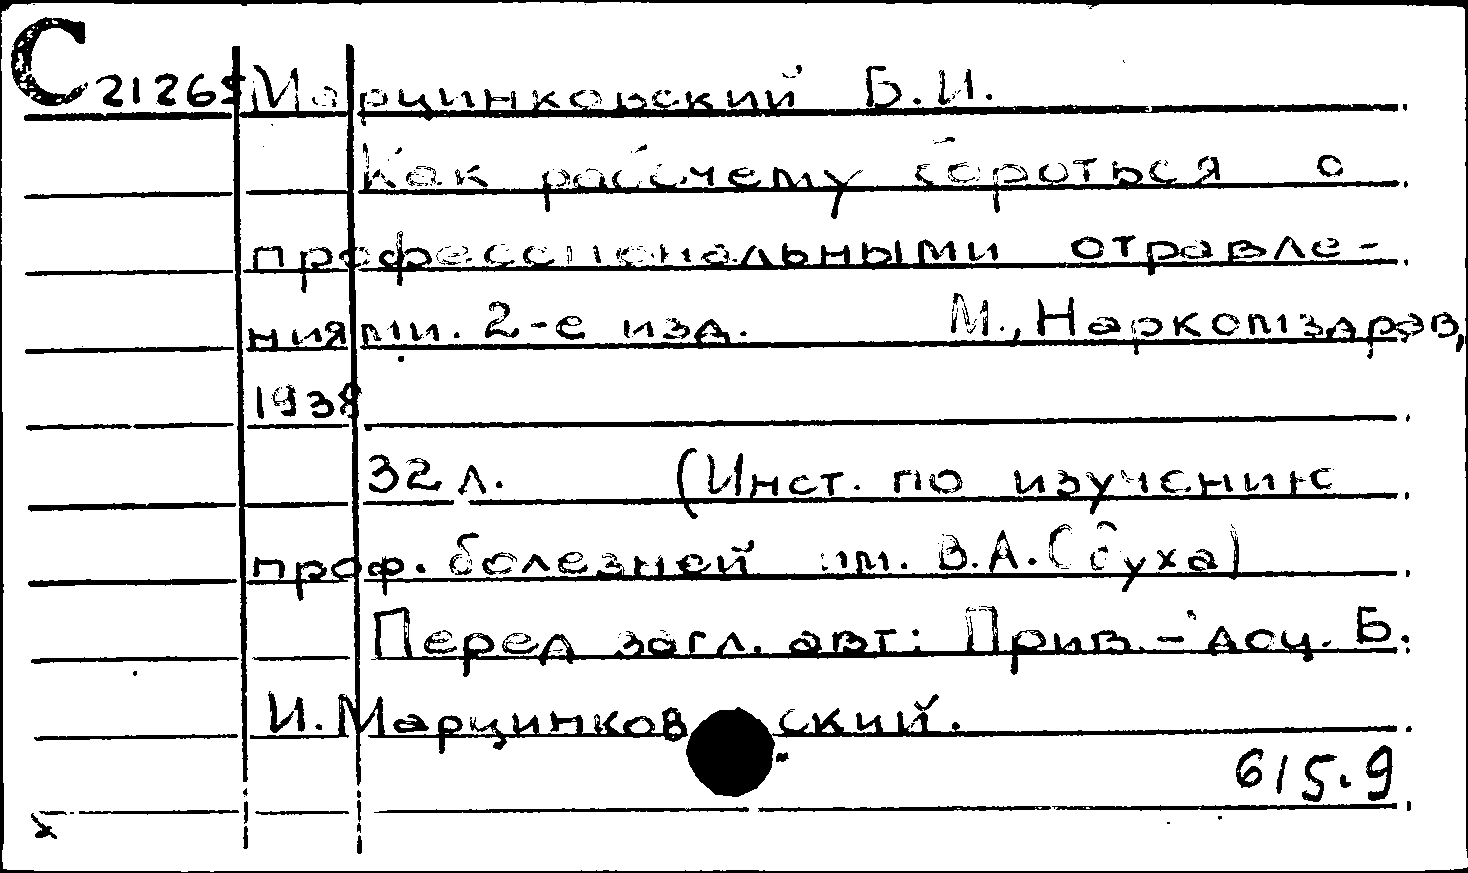 С 21265 Марцинковский Б.И.
Как рабочему бороться с
профессиональными отравле-
ниями. 2-е изд. М., Наркомздрав,
1938
32 л. (Инст. по изучению
проф. болезней им. В.А.Обуха)
Перед загл. авт: Прив.-доц. Б.
И.Марцинковский.
615.9